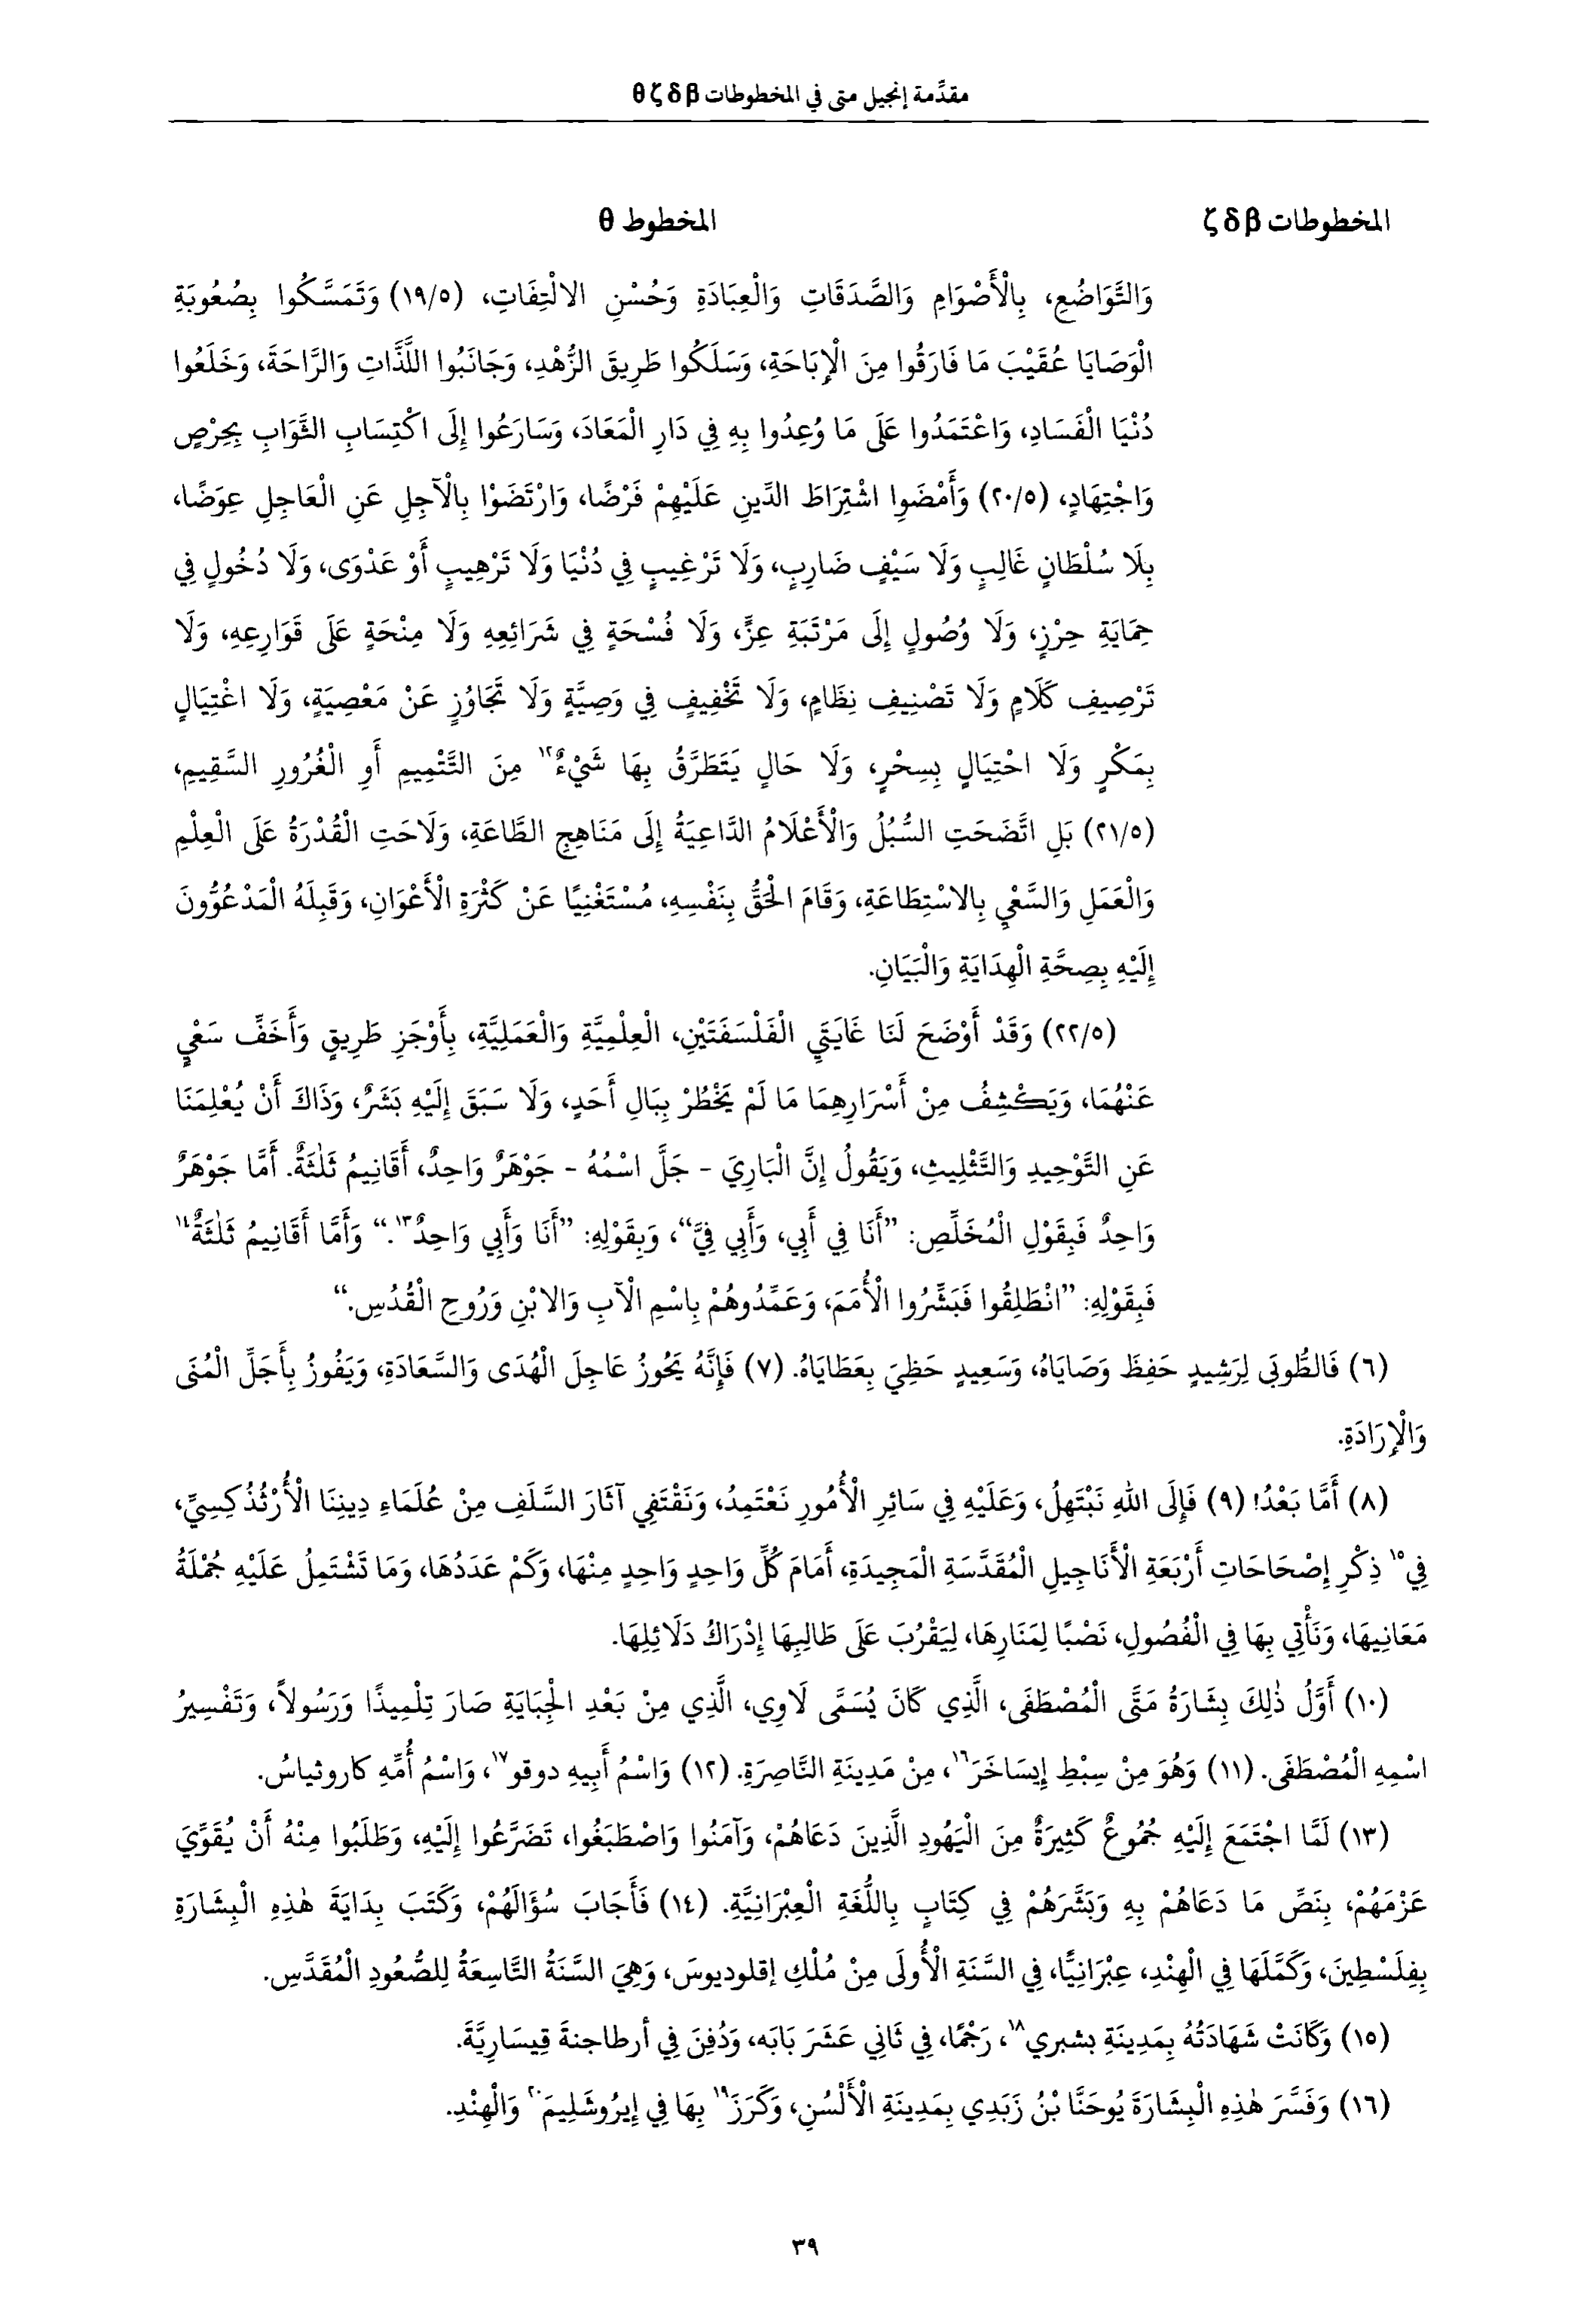 مقدِّمة إنجيل متى في المخطوطات β δ ζ θ
المخطوطات β δ ζ
المخطوط θ
وَالتَّوَاضُعِ، بِالْأَصْوَامِ وَالصَّدَقَاتِ وَالْعِبَادَةِ وَحُسْنِ الالْتِفَاتِ، (١٩/٥) وَتَمَسَّكُوا بِصُعُوبَةِ
الْوَصَايَا عُقَيْبَ مَا فَارَقُوا مِنَ الْإِبَاحَةِ، وَسَلَكُوا طَرِيقَ الزُّهْدِ، وَجَانَبُوا اللَّذَّاتِ وَالرَّاحَةَ، وَخَلَعُوا
دُنْيَا الْفَسَادِ، وَاعْتَمَدُوا عَلَى مَا وُعِدُوا بِهِ فِي دَارِ الْمَعَادَ، وَسَارَعُوا إِلَى اكْتِسَابِ الثَّوَابِ بِحِرْصٍ
وَاجْتِهَادٍ، (٢٠/٥) وَأَمْضَوِا اشْتِرَاطَ الدِّينِ عَلَيْهِمْ فَرْضًا، وَارْتَضَوْا بِالْآجِلِ عَنِ الْعَاجِلِ عِوَضًا،
بِلَا سُلْطَانٍ غَالِبٍ وَلَا سَيْفٍ ضَارِبٍ، وَلَا تَرْغِيبٍ فِي دُنْيَا وَلَا تَرْهِيبٍ أَوْ عَدْوَى، وَلَا دُخُولٍ فِي
حِمَايَةِ حِرْزٍ، وَلَا وُصُولٍ إِلَى مَرْتَبَةِ عِزٍّ، وَلَا فُسْحَةٍ فِي شَرَائِعِهِ وَلَا مِنْحَةٍ عَلَى قَوَارِعِهِ، وَلَا
تَرْصِيفِ كَلَامٍ وَلَا تَصْنِيفِ نِظَامٍ، وَلَا تَخْفِيفٍ فِي وَصِيَّةٍ وَلَا تَجَاوُزٍ عَنْ مَعْصِيَةٍ، وَلَا اغْتِيَالٍ
بِمَكْرٍ وَلَا احْتِيَالٍ بِسِحْرٍ، وَلَا حَالٍ يَتَطَرَّقُ بِهَا شَيْءٌ١٢ مِنَ التَّتْمِيمِ أَوِ الْغُرُورِ السَّقِيمِ،
(٢١/٥) بَلِ اتَّضَحَتِ السُّبُلُ وَالْأَعْلَامُ الدَّاعِيَةُ إِلَى مَنَاهِجِ الطَّاعَةِ، وَلَاحَتِ الْقُدْرَةُ عَلَى الْعِلْمِ
وَالْعَمَلِ وَالسَّعْيِ بِالاسْتِطَاعَةِ، وَقَامَ الْحَقُّ بِنَفْسِهِ، مُسْتَغْنِيًا عَنْ كَثْرَةِ الْأَعْوَانِ، وَقَبِلَهُ الْمَدْعُوُّونَ
إِلَيْهِ بِصِحَّةِ الْهِدَايَةِ وَالْبَيَانِ.
(٢٢/٥) وَقَدْ أَوْضَحَ لَنَا غَايَتَيِ الْفَلْسَفَتَيْنِ، الْعِلْمِيَّةِ وَالْعَمَلِيَّةِ، بِأَوْجَزِ طَرِيقٍ وَأَخَفِّ سَعْيٍ
عَنْهُمَا، وَيَكْشِفُ مِنْ أَسْرَارِهِمَا مَا لَمْ يَخْطُرْ بِبَالِ أَحَدٍ، وَلَا سَبَقَ إِلَيْهِ بَشَرٌ، وَذَاكَ أَنْ يُعْلِمَنَا
عَنِ التَّوْحِيدِ وَالتَّثْلِيثِ، وَيَقُولُ إِنَّ الْبَارِيَ - جَلَّ اسْمُهُ - جَوْهَرٌ وَاحِدٌ، أَقَانِيمُ ثَلٰثَةٌ. أَمَّا جَوْهَرٌ
وَاحِدٌ فَبِقَوْلِ الْمُخَلِّصِ: ”أَنَا فِي أَبِي، وَأَبِي فِيَّ“، وَبِقَوْلِهِ: ”أَنَا وَأَبِي وَاحِدٌ١٣.“ وَأَمَّا أَقَانِيمُ ثَلٰثَةٌ١٤
فَبِقَوْلِهِ: ”انْطَلِقُوا فَبَشِّرُوا الْأُمَمَ، وَعَمِّدُوهُمْ بِاسْمِ الْآبِ وَالابْنِ وَرُوحِ الْقُدُسِ.“
(٦) فَالطُّوبَى لِرَشِيدٍ حَفِظَ وَصَايَاهُ، وَسَعِيدٍ حَظِيَ بِعَطَايَاهُ. (٧) فَإِنَّهُ يَحُوزُ عَاجِلَ الْهُدَى وَالسَّعَادَةِ، وَيَفُوزُ بِأَجَلِّ الْمُنَى
وَالْإِرَادَةِ.
(٨) أَمَّا بَعْدُ! (٩) فَإِلَى اللهِ نَبْتَهِلُ، وَعَلَيْهِ فِي سَائِرِ الْأُمُورِ نَعْتَمِدُ، وَنَقْتَفِي آثَارَ السَّلَفِ مِنْ عُلَمَاءِ دِينِنَا الْأُرْثُذُكِسِيِّ،
فِي١٥ ذِكْرِ إِصْحَاحَاتِ أَرْبَعَةِ الْأَنَاجِيلِ الْمُقَدَّسَةِ الْمَجِيدَةِ، أَمَامَ كُلِّ وَاحِدٍ وَاحِدٍ مِنْهَا، وَكَمْ عَدَدُهَا، وَمَا تَشْتَمِلُ عَلَيْهِ جُمْلَةُ
مَعَانِيهَا، وَنَأْتِي بِهَا فِي الْفُصُولِ، نَصْبًا لِمَنَارِهَا، لِيَقْرُبَ عَلَى طَالِبِهَا إِدْرَاكُ دَلَائِلِهَا.
(١٠) أَوَّلُ ذٰلِكَ بِشَارَةُ مَتَّى الْمُصْطَفَى، الَّذِي كَانَ يُسَمَّى لَاوِي، الَّذِي مِنْ بَعْدِ الْجِبَايَةِ صَارَ تِلْمِيذًا وَرَسُولاً، وَتَفْسِيرُ
اسْمِهِ الْمُصْطَفَى. (١١) وَهُوَ مِنْ سِبْطِ إِيسَاخَرَ١٦، مِنْ مَدِينَةِ النَّاصِرَةِ. (١٢) وَاسْمُ أَبِيهِ دوقو١٧، وَاسْمُ أُمِّهِ كاروثياسُ.
(١٣) لَمَّا اجْتَمَعَ إِلَيْهِ جُمُوعٌ كَثِيرَةٌ مِنَ الْيَهُودِ الَّذِينَ دَعَاهُمْ، وَآمَنُوا وَاصْطَبَغُوا، تَضَرَّعُوا إِلَيْهِ، وَطَلَبُوا مِنْهُ أَنْ يُقَوِّيَ
عَزْمَهُمْ، بِنَصِّ مَا دَعَاهُمْ بِهِ وَبَشَّرَهُمْ فِي كِتَابٍ بِاللُّغَةِ الْعِبْرَانِيَّةِ. (١٤) فَأَجَابَ سُؤَالَهُمْ، وَكَتَبَ بِدَايَةَ هٰذِهِ الْبِشَارَةِ
بِفِلَسْطِينَ، وَكَمَّلَهَا فِي الْهِنْدِ، عِبْرَانِيًّا، فِي السَّنَةِ الْأُولَى مِنْ مُلْكِ إقلوديوسَ، وَهِيَ السَّنَةُ التَّاسِعَةُ لِلصُّعُودِ الْمُقَدَّسِ.
(١٥) وَكَانَتْ شَهَادَتُهُ بِمَدِينَةِ بشبري١٨، رَجْمًا، فِي ثَانِي عَشَرَ بَابَه، وَدُفِنَ فِي أرطاجنةَ قِيسَارِيَّةَ.
(١٦) وَفَسَّرَ هٰذِهِ الْبِشَارَةَ يُوحَنَّا بْنُ زَبَدِي بِمَدِينَةِ الْأَلْسُنِ، وَكَرَزَ١٩ بِهَا فِي إِيرُوشَلِيمَ٢٠ وَالْهِنْدِ.
٣٩